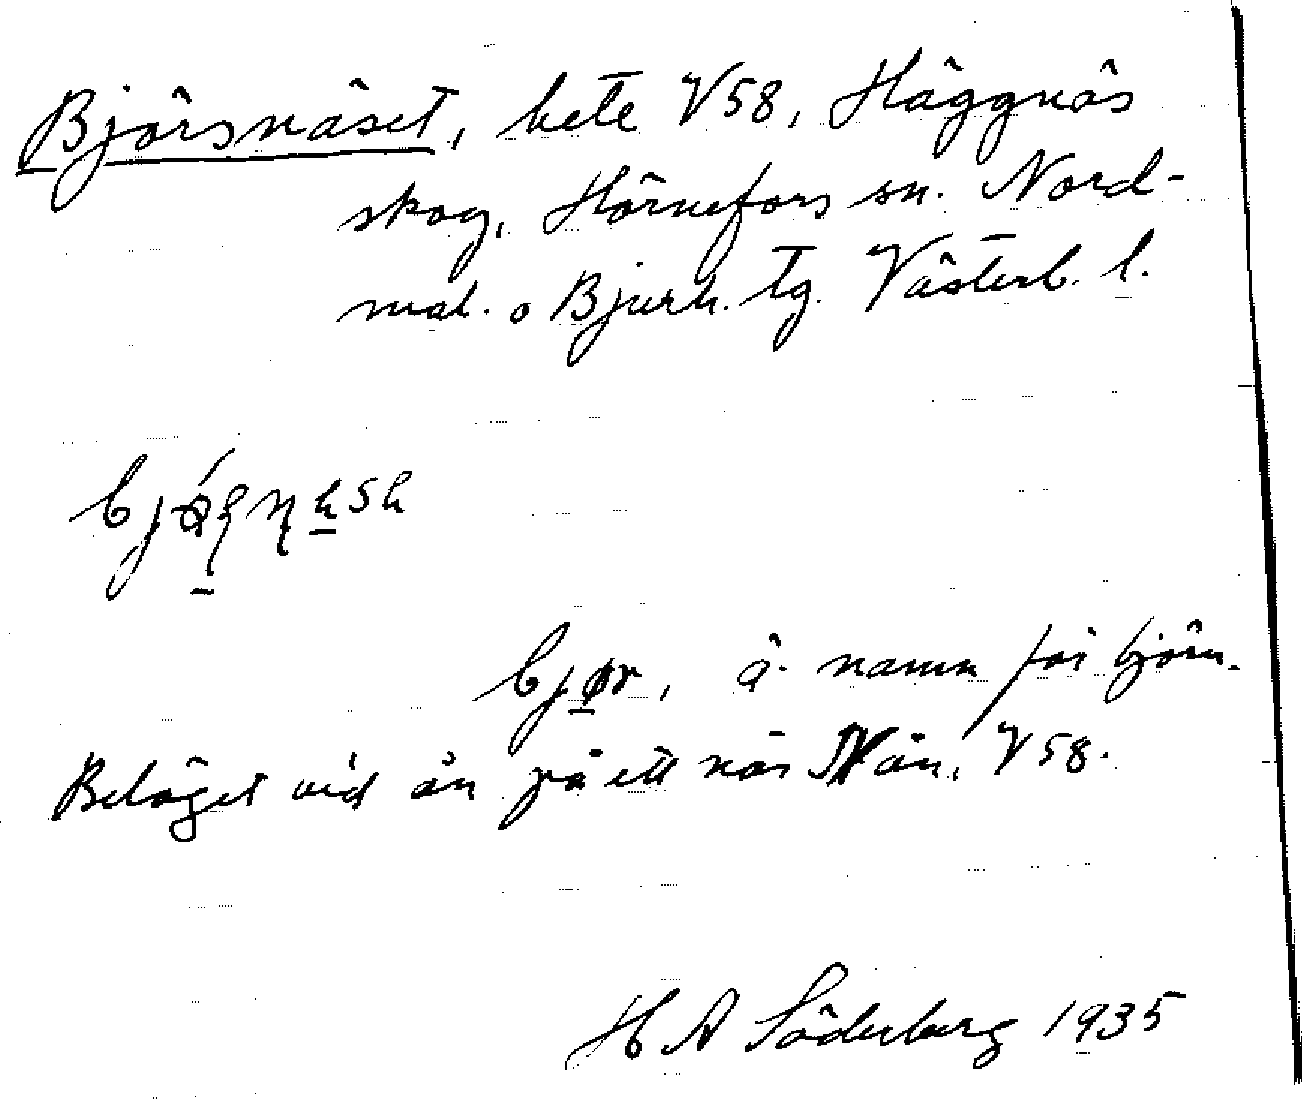 Björsnäset, bete V58, Häggnäs
skog, Hörnefors sn. Nord-
mal. o Bjurh. tg. Västerb. l.
bjør, ä. namn för björn.
Beläget vid ån på ett näs N ån, V58.
H A Söderberg 1935